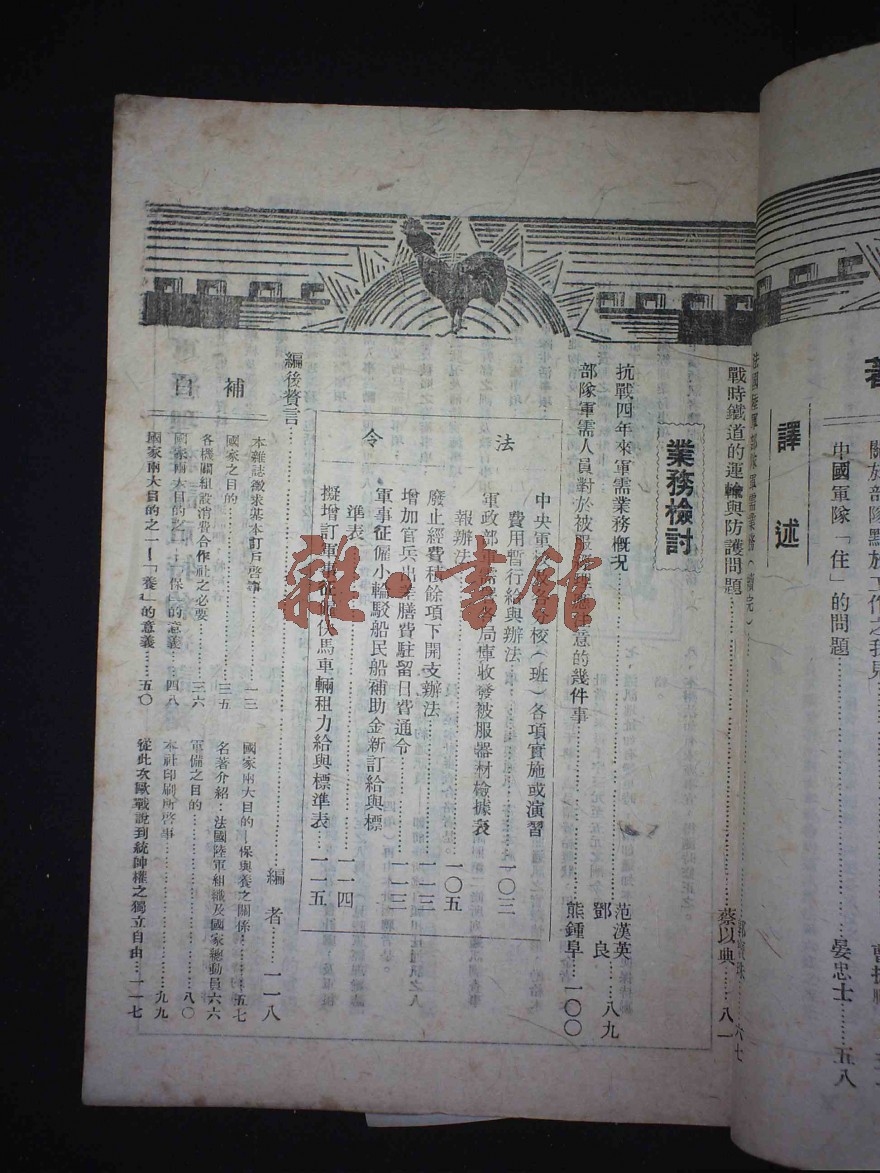 著
譯述
關於部隊點放工作之我見
中國軍隊「住」的問題………晏忠士………五八
法國陸軍部隊軍需業務（續完）………六七
戰時鐵道的運輸與防護問題………蔡以典………八一
業務檢討
抗戰四年來軍需業務概況………范漢英 鄧良………八九
部隊軍需人員對於被服意的幾件事………熊鍾阜………一〇〇
法令
中央軍校（班）各項實施或演習
費用暫行給與辦法………一〇三
軍政部軍需局庫收發被服器材檢據表
報辦法………一〇五
廢止經費積餘項下開支辦法………一一三
增加官兵出差膳費駐留日費通令………一一三
軍事征僱小輪駁船民船補助金新訂給與標
準表………一一四
擬增訂軍伕馬車輛租力給與標準表………一一五
編後贅言………編者………一一八
補白
本雜誌徵求基本訂戶啓事………一三
國家之目的………三五
各機關組設消費合作社之必要………三六
國家兩大目的之一「保」的意義………四八
國家兩大目的之一—「養」的意義………五〇
國家兩大目的「保與養之關係………五七
名著介紹：法國陸軍組織及國家總動員六六
軍備之目的………八〇
本社印刷所啓事………九九
從此次歐戰說到統帥權之獨立自由…一一七
雜·書館